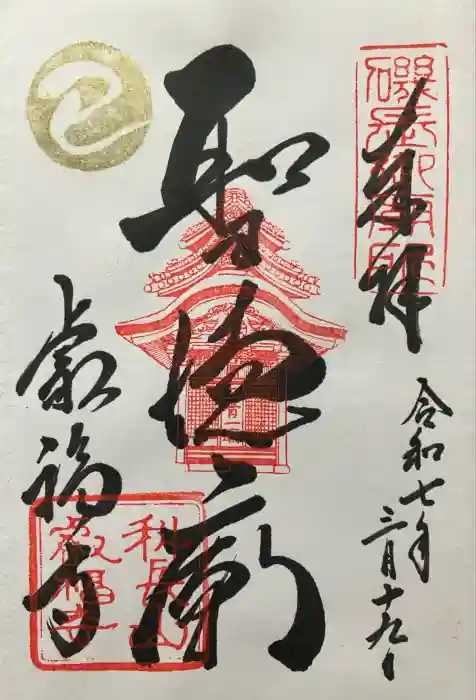 奉拝
令和七年
三月十九日
聖徳廟
叡福寺
磯長御廟
科長山
叡福寺
巳